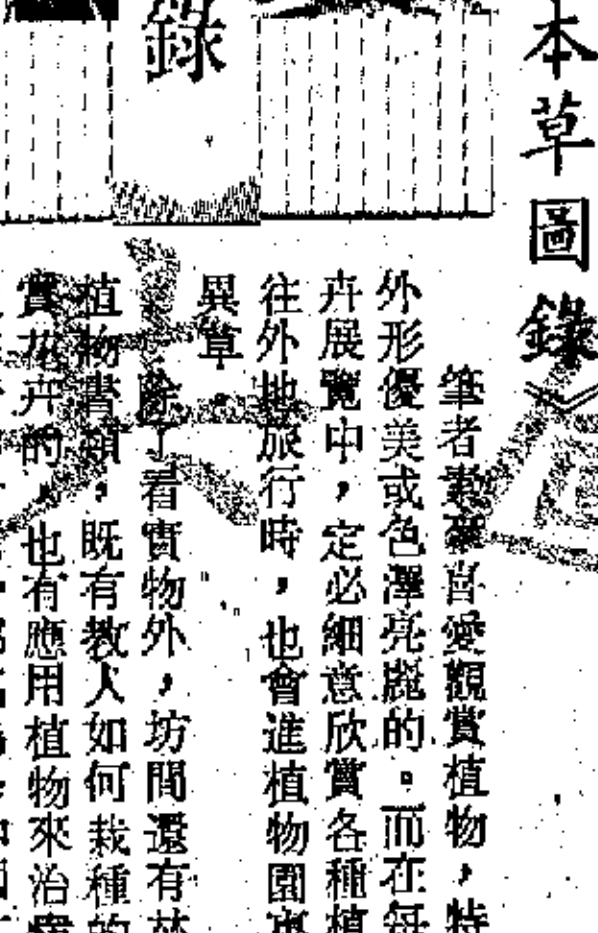 本草圖錄》
錄
筆者素來喜愛觀賞植物，特
外形優美或色澤亮麗的。而在每
卉展覽中，定必細意欣賞各種植
往外地旅行時，也會進植物園裏
異草。
除了看實物外，坊間還有林
植物書類，既有教人如何栽種的
實花卉的，也有應用植物來治療